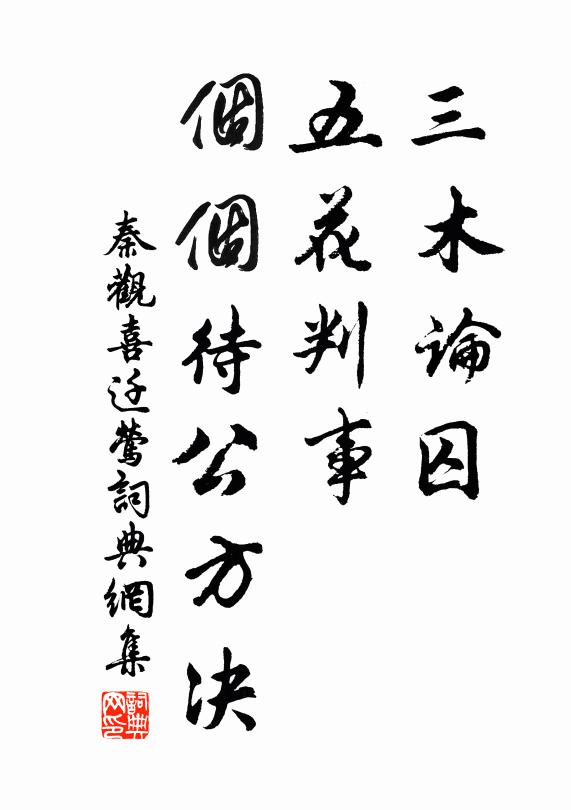 三木論囚
五花判事
個個待公方決
秦觀喜迁鶯詞典網集
詞典网印